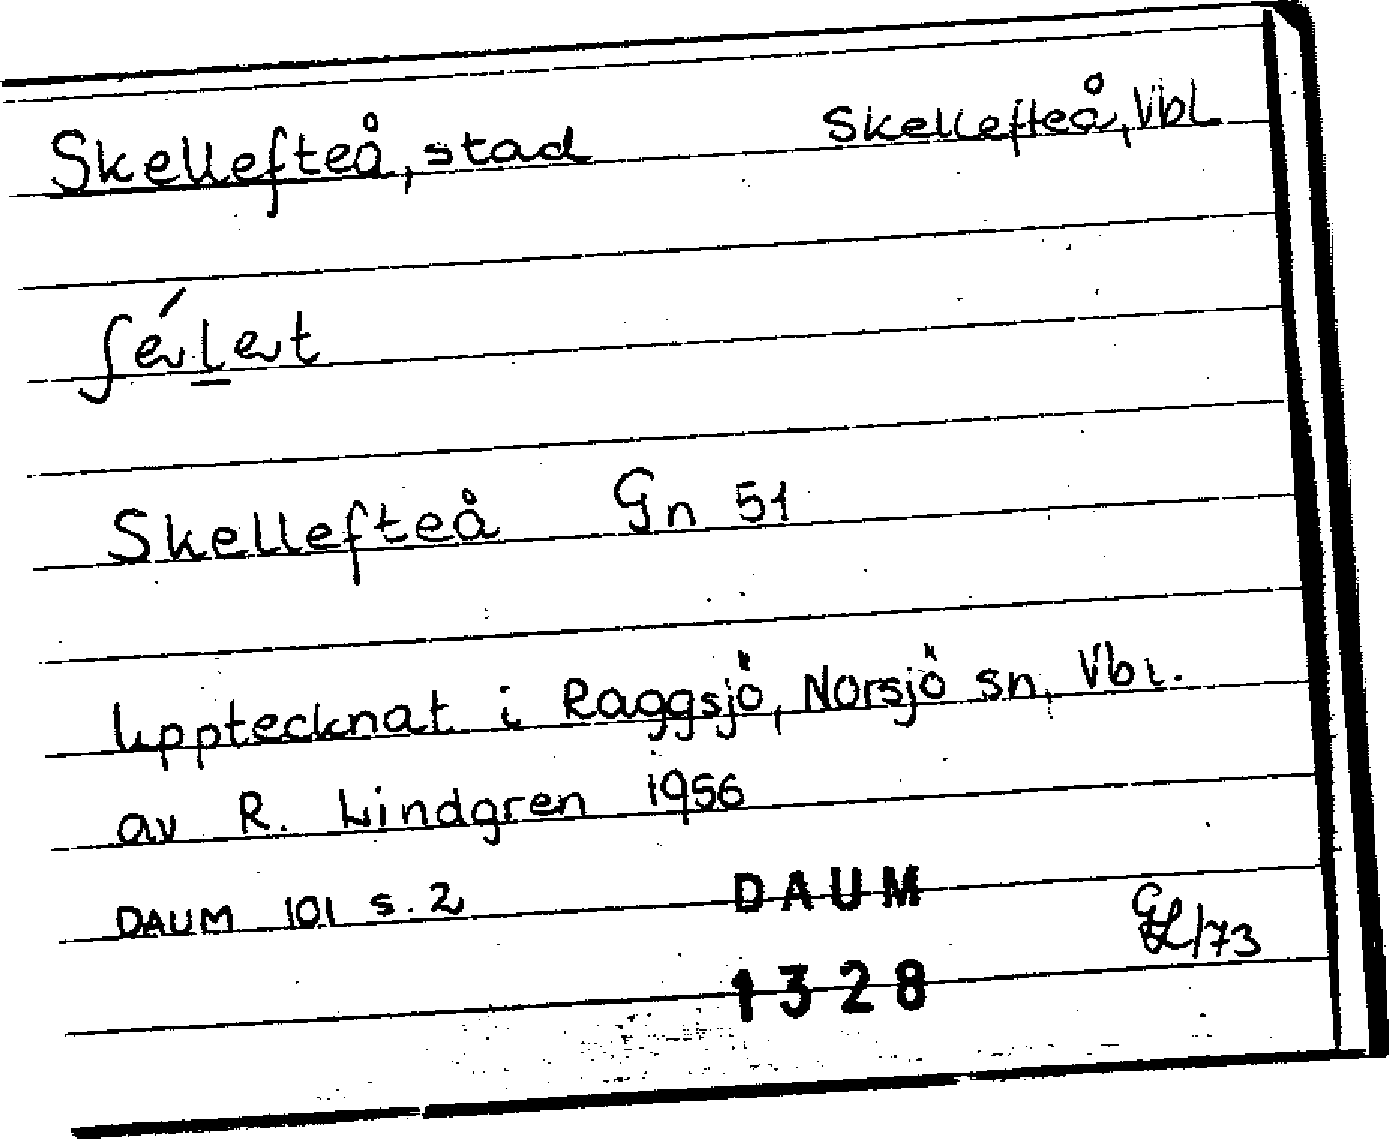 Skellefteå, stad Skellefteå, Vbl
ʃél̠et
Skellefteå Gn 51
Upptecknat i Raggsjö, Norsjö sn, Vbl.
av R. Lindgren 1956
DAUM 101 s. 2 DAUM
GL/73
1328